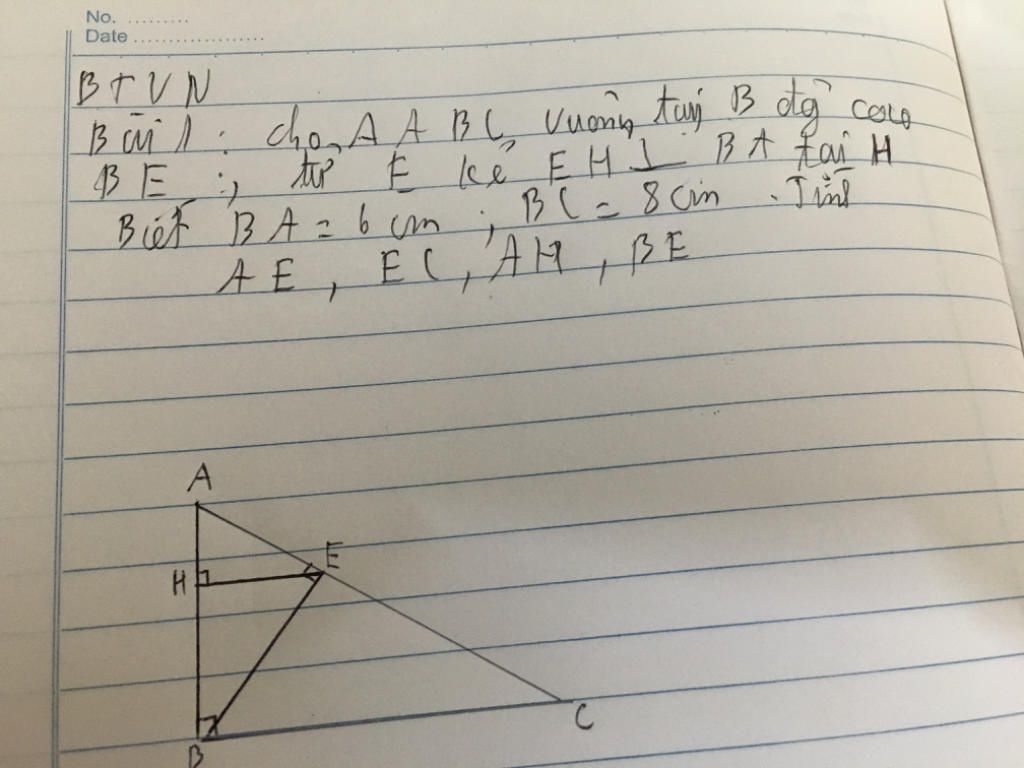 No. .........
Date ...................
BTVN
Bài 1 : cho Δ ABC vuông tại B đg cao
BE ; từ E kẻ EH ⊥ BA tại H
Biết BA = 6 cm ; BC = 8 cm . Tính
AE , EC , AH , BE
A
E
H
C
B